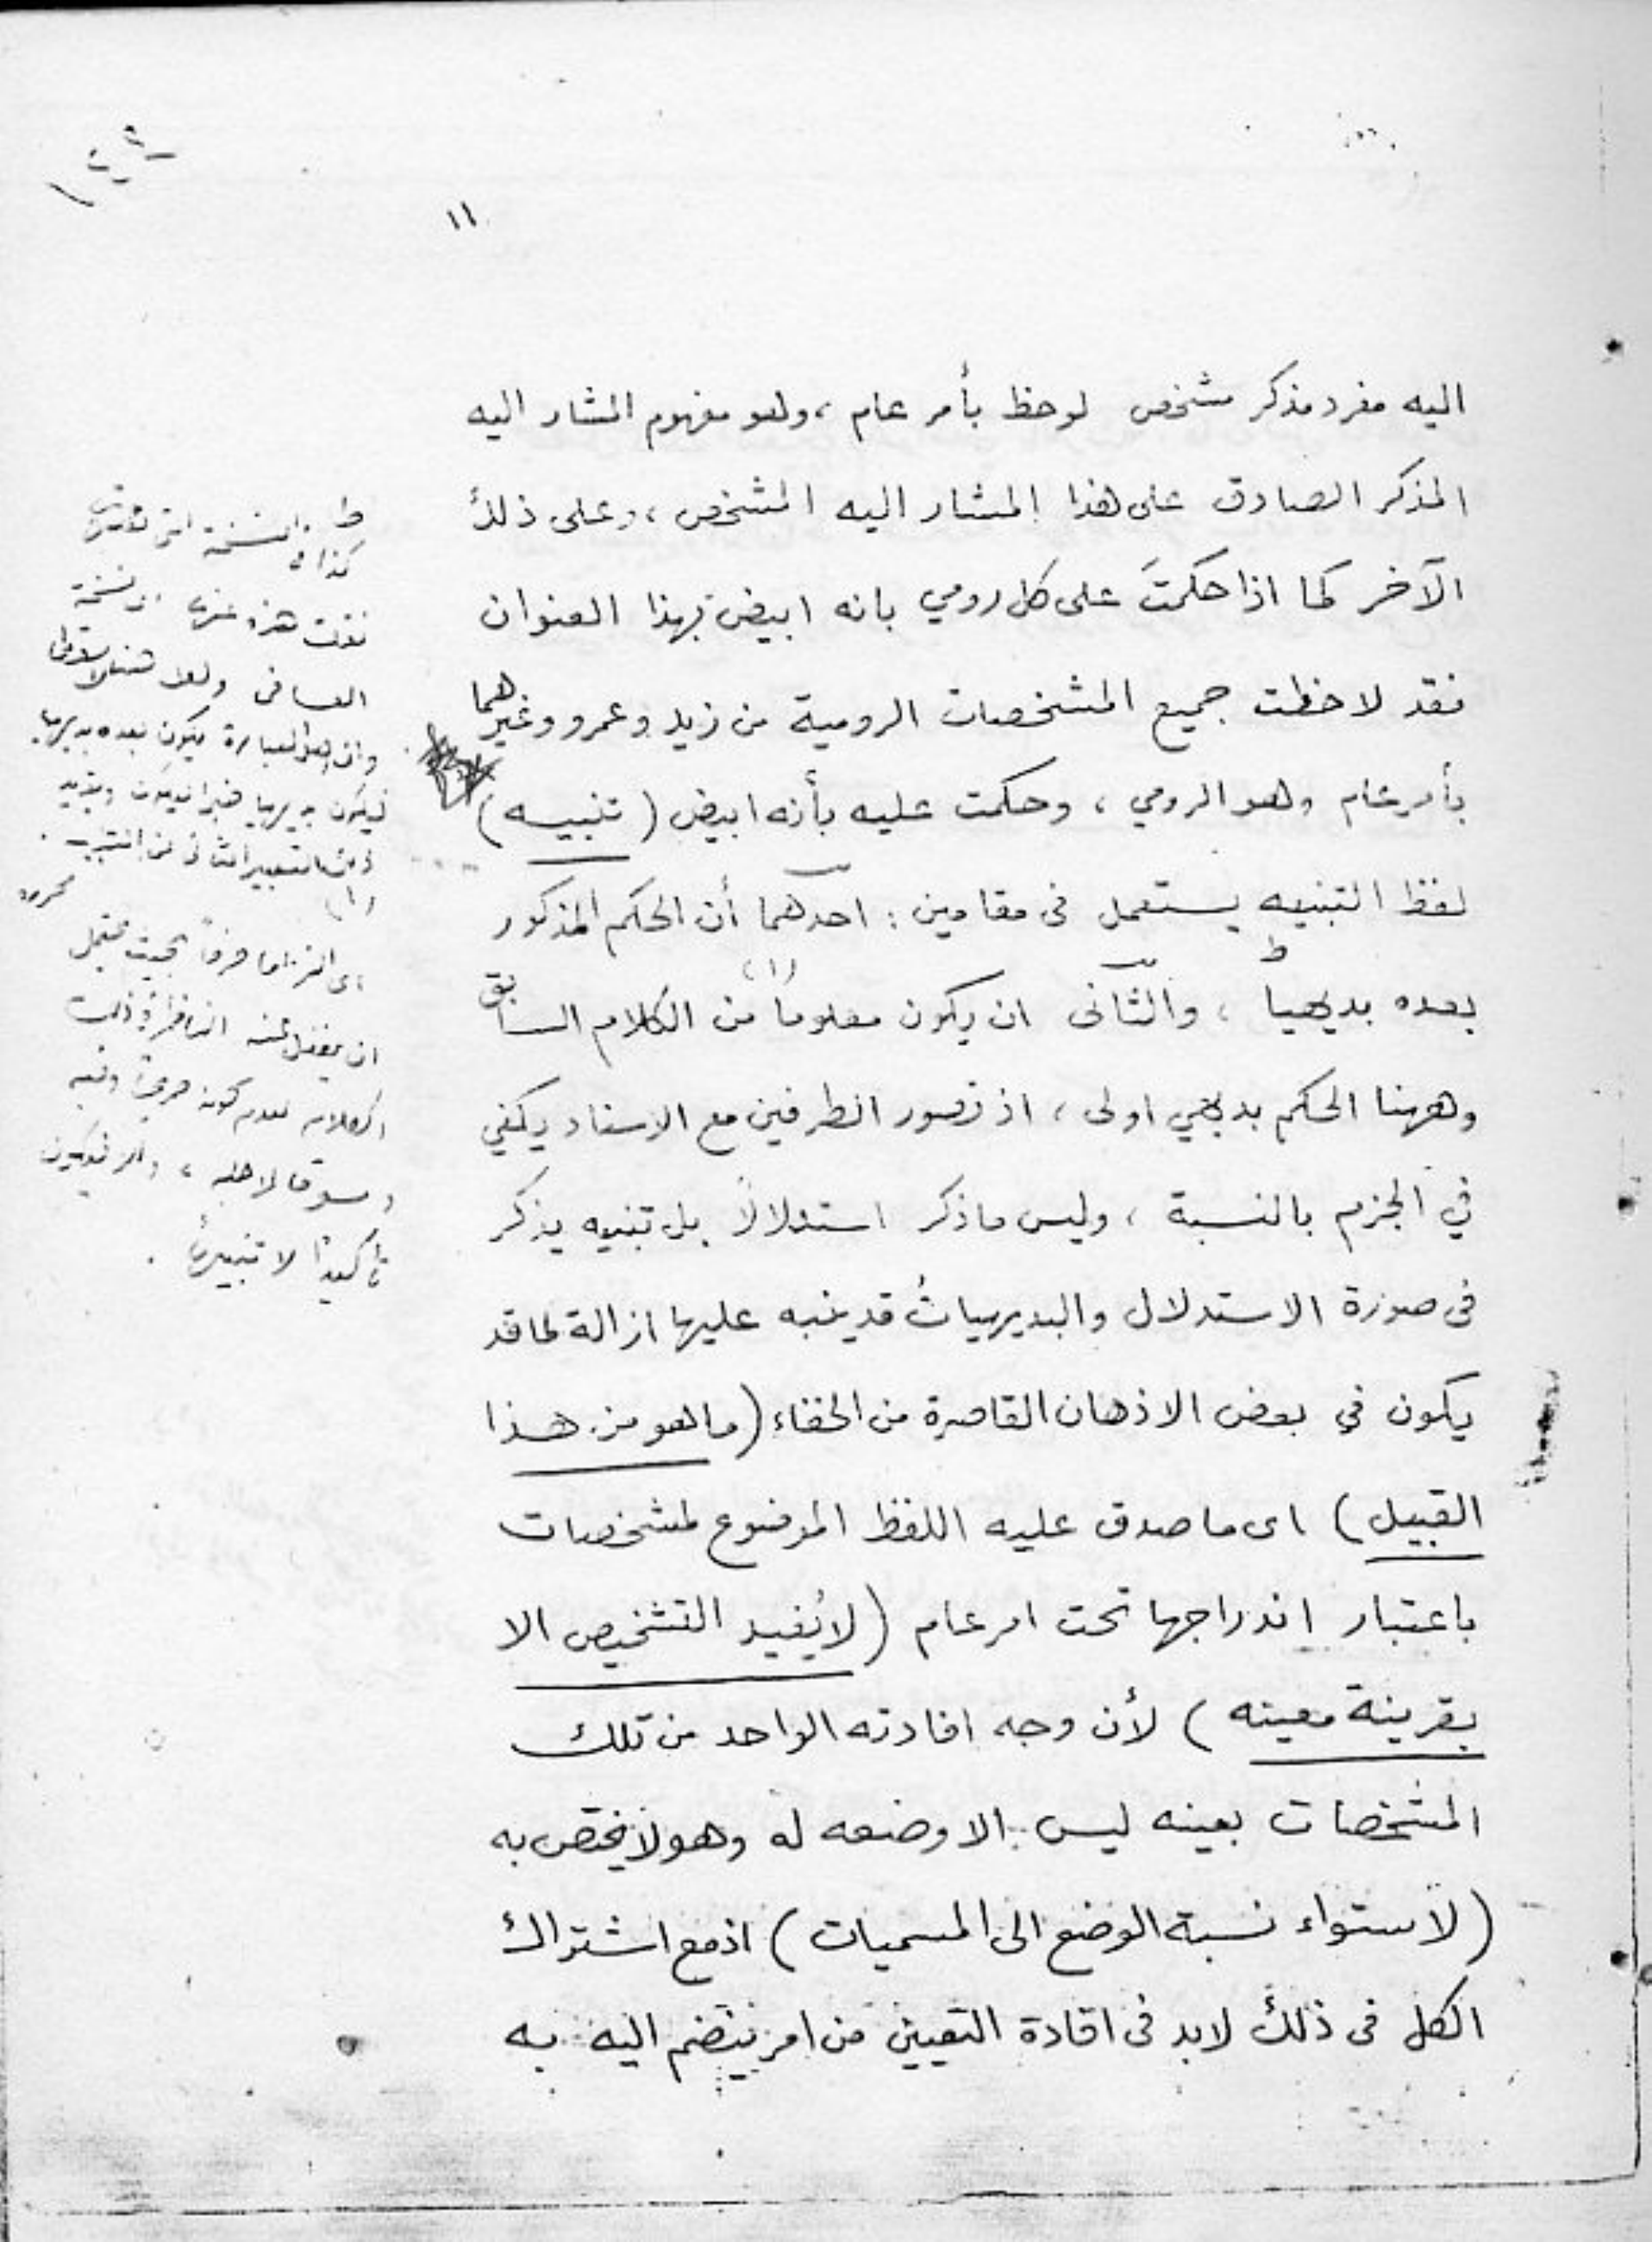 ١١
اليه مفرد مذكر مشخص لوحظ بأمر عام ، وهو مفهوم المشار اليه
المذكر الصادق على هذا المشار اليه المشخص ، وعلى ذلك
الآخر كما اذا حكمتَ على كل رومي بانه ابيض بهذا العنوان
فقد لاحظت جميع المشخصات الرومية من زيد وعمرو وغيرهما
بأمر عام وهو الرومي ، وحكمت عليه بأنه ابيض ( تنبيه )
لفظ التنبيه يستعمل فى مقامين : احدهما أن الحكم المذكور
بعده بديهيا ، والثانى ان يكون معلوماً (١) من الكلام السابق
وههنا الحكم بديهي اولى ، اذ تصور الطرفين مع الاسناد يكفي
في الجزم بالنسبة ، وليس ماذكر استدلالاً بل تنبيه يذكر
فى صورة الاستدلال والبديهيات قد ينبه عليها ازالة لما قد
يكون في بعض الاذهان القاصرة من الخفاء ( ما هو من هذا
القبيل ) اى ما صدق عليه اللفظ الموضوع لمشخصات
باعتبار اندراجها تحت امر عام ( لايُفيد التشخيص الا
بقرينة معينه ) لأن وجه افادته الواحد من تلك
المشخصات بعينه ليس الا وضعه له وهو لا يختص به
( لاستواء نسبة الوضع الى المسميات ) اذ مع اشتراك
الكل فى ذلك لابد فى افادة التعيين من امر ينضم اليه به
ط
كذا في النسخة التي
نقلت هذه عنها
وان العبارة يكون بعده بديهيا
فيكون بديهيا خبرا ليكون
(١)
بحيث يحتمل
ان يغفل عنه الناظر في ذلك
الكلام لعدم كونه صريحاً وفيه
ومسوقا لاجله ، والا فيكون
تأكيداً لا تنبيهاً .